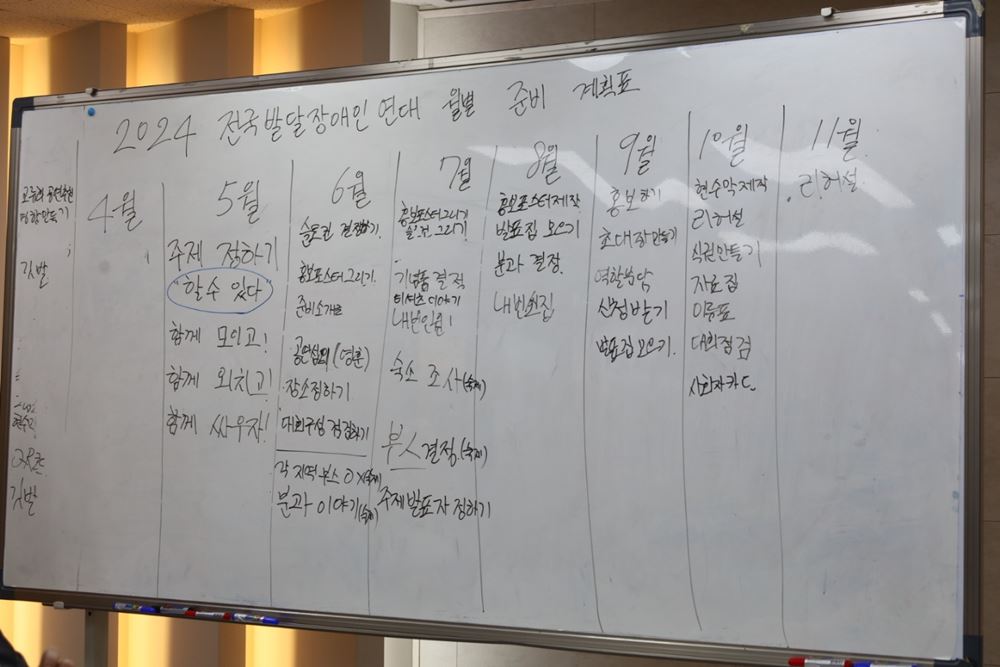 2024 전국발달장애인연대 월별 준비 계획표
깃발
현수막
깃발
4월
5월
주제 정하기
"할수 있다"
함께 모이고!
함께 외치고!
함께 싸우자!
6월
슬로건 결정하기.
홍보포스터그리기.
준비소개
공연섭외(영훈)
장소정하기
대회구성 점검하기
각 지역 부스 OX(숙제)
분과 이야기(숙제)
7월
홍보포스터그리기
기념품 결정
티셔츠 이야기
숙소 조사(숙제)
부스결정.(숙제)
주제발표자 정하기
8월
홍보포스터제작.
발표집 모으기
분과 결정.
9월
홍보하기
초대장만들기
역할분담
신청받기
발표집 모으기.
10월
현수막제작
리허설
식권만들기
자료집
이름표
대회점검
사회자카드
11월
리허설